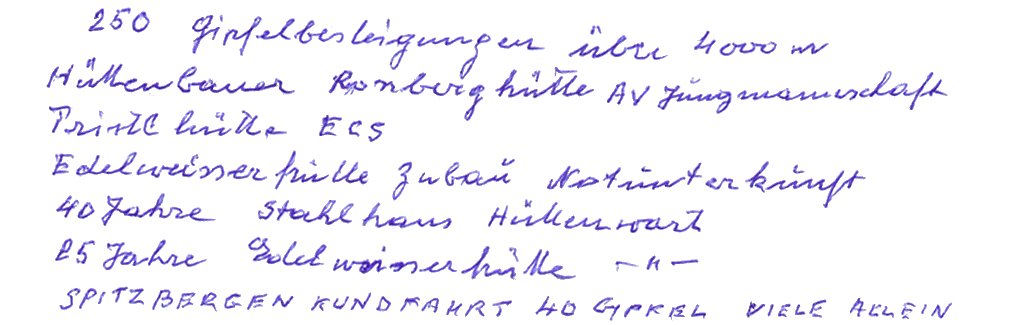 250 Gipfelbesteigungen über 4000 m
Hüttenbauer Rosberghütte AV Jungmannschaft
hütte ECS
Edelweisserhütte Zubau Notunterkunft
40 Jahre Stahlhaus Hüttenwart
25 Jahre Edelweisserhütte -"-
SPITZBERGEN KUNDFAHRT 40 GIPFEL VIELE ALLEIN